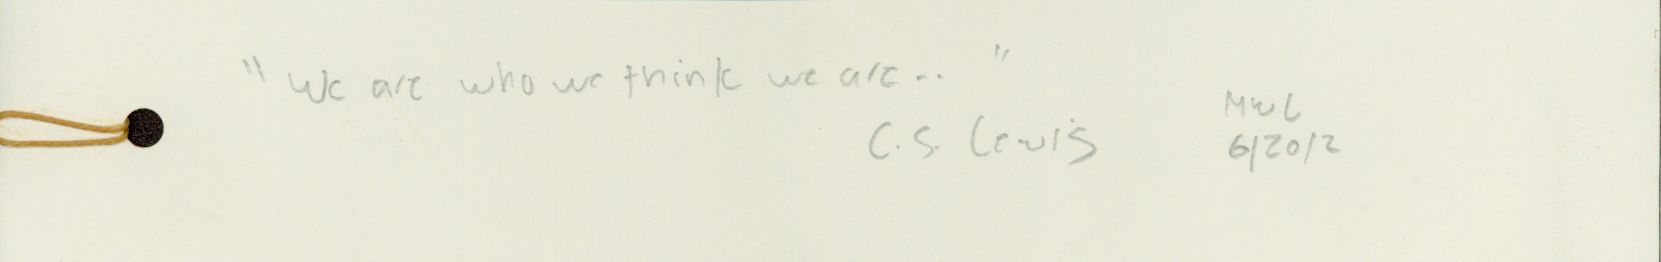 "We are who we think we are.."
C.S. Lewis
MWL
6/2012